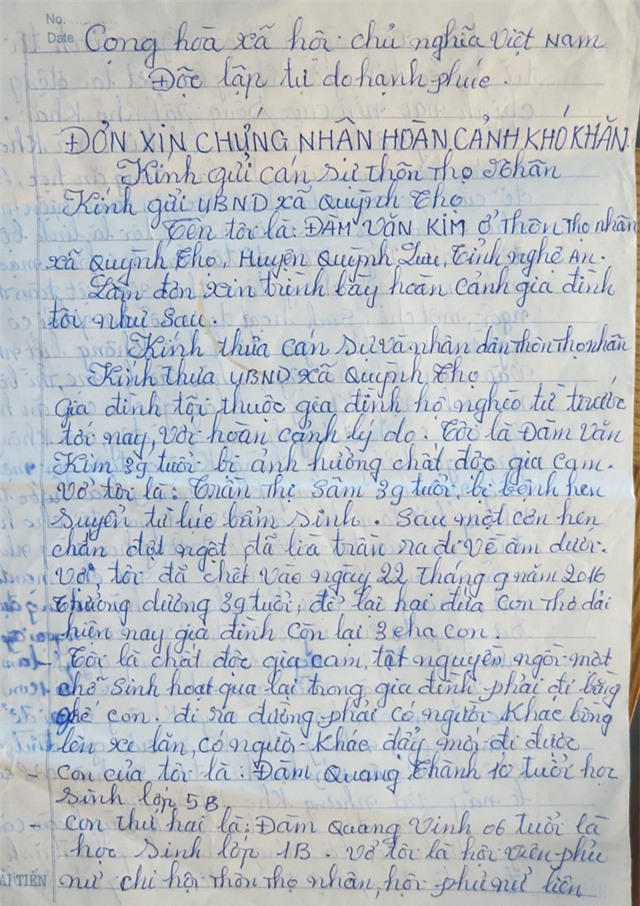 No.
Date
Cọng hòa xã hội chủ nghĩa Việt Nam
Độc lập tự do hạnh phúc.
ĐỞN XIN CHỨNG NHÂN HOÀN CẢNH KHÓ KHĂN.
Kính gửi cán sự thôn Thọ Nhân
Kính gửi UBND xã Quỳnh Thọ
Tên tôi là: ĐÀM VĂN KIM ở thôn Thọ nhân
xã Quỳnh Thọ, Huyện Quỳnh Lưu, Tỉnh nghệ An.
Làm đơn xin trình bày hoàn cảnh gia đình
tôi như sau.
Kính thưa cán sự và nhân dân thôn Thọ nhân
Kính thưa UBND xã Quỳnh Thọ
Gia đình tôi thuộc gia đình hộ nghèo từ trước
tới nay, với hoàn cảnh lý do. Tôi là Đàm Văn
Kim 39 tuổi bị ảnh hưởng chất độc gia cam.
Vở tôi là: Trần Thị Sâm 39 tuổi, bị bệnh hen
suyễn từ lúc bẩm sinh. Sau một cơn hen
chấn đột ngột đã lià trần ra đi về âm dưới.
Vở tôi đã chết vào ngày 22 tháng 9 năm 2016
thưởng dưỡng 39 tuổi, để lại hai đứa con thơ dải
hiện nay gia đình còn lại 3 cha con.
- Tôi là chất độc gia cam, tật nguyền ngồi một
chỗ sinh hoạt qua lại trong gia đình phải đi bằng
ghế con. đi ra đường phải có người khác bồng
lên xe lăn, có người khác đẩy mới đi được
- con của tôi là: Đàm Quang Thành 10 tuổi học
sinh lớp 5B.
- con thứ hai là: Đàm Quang Vinh 06 tuổi là
học sinh lớp 1B. Vở tôi là hội viên phụ
nữ chi hội thôn thọ nhân, hội phụ nữ liên
ẢI TIẾN